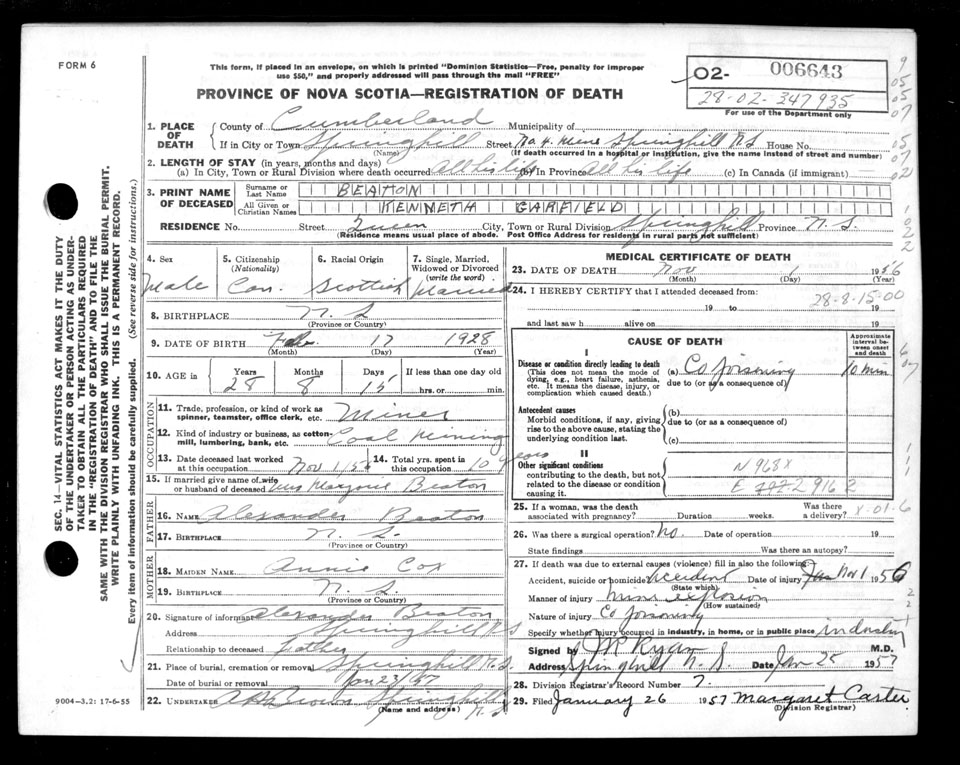 FORM 6
This form, if placed in an envelope, on which is printed "Dominion Statistics—Free, penalty for improper
use $50," and properly addressed will pass through the mail "FREE"
PROVINCE OF NOVA SCOTIA—REGISTRATION OF DEATH
02- 006643
28-02-347935
For use of the Department only
1. PLACE OF DEATH
County of Cumberland Municipality of
If in City or Town Springhill Street No. 4 Mine Springhill N.S. House No.
(Name) (If death occurred in a hospital or institution, give the name instead of street and number)
2. LENGTH OF STAY (in years, months and days)
(a) In City, Town or Rural Division where death occurred all his life (b) In Province All his life (c) In Canada (if immigrant)
3. PRINT NAME OF DECEASED
Surname or Last Name BEATON
All Given or Christian Names KENNETH GARFIELD
RESIDENCE No. Street Queen City, Town or Rural Division Springhill Province N.S.
(Residence means usual place of abode. Post Office Address for residents in rural parts not sufficient)
4. Sex Male
5. Citizenship (Nationality) Can.
6. Racial Origin Scottish
7. Single, Married, Widowed or Divorced (write the word) Married
8. BIRTHPLACE N.S.
(Province or Country)
9. DATE OF BIRTH Feb. 17 1928
(Month) (Day) (Year)
10. AGE in Years 28 Months 8 Days 15 If less than one day old
hrs. or min.
OCCUPATION
11. Trade, profession, or kind of work as spinner, teamster, office clerk, etc. Miner
12. Kind of industry or business, as cotton-mill, lumbering, bank, etc. Coal Mining
13. Date deceased last worked at this occupation Nov 1/56
14. Total yrs. spent in this occupation 10 years
15. If married give name of wife or husband of deceased Mrs Marjorie Beaton
FATHER
16. NAME Alexander Beaton
17. BIRTHPLACE N.S.
(Province or Country)
MOTHER
18. MAIDEN NAME Annie Cox
19. BIRTHPLACE N.S.
(Province or Country)
20. Signature of informant Alexander Beaton
Address Springhill N.S.
Relationship to deceased Father
21. Place of burial, cremation or removal Springhill N.S.
Date of burial or removal Jan 23/57
22. UNDERTAKER Brown Springhill N.S.
(Name and address)
MEDICAL CERTIFICATE OF DEATH
23. DATE OF DEATH Nov 1 1956
(Month) (Day) (Year)
24. I HEREBY CERTIFY that I attended deceased from:
28-8-15-00
19 to 19
and last saw h alive on 19
CAUSE OF DEATH
Approximate interval between onset and death
I
Disease or condition directly leading to death
(This does not mean the mode of dying, e.g., heart failure, asthenia, etc. It means the disease, injury, or complication which caused death.)
(a) Co Poisoning 10 min
due to (or as a consequence of)
Antecedent causes
Morbid conditions, if any, giving rise to the above cause, stating the underlying condition last.
(b)
due to (or as a consequence of)
(c)
II
Other significant conditions
contributing to the death, but not related to the disease or condition causing it.
N 968x
E 9162
25. If a woman, was the death associated with pregnancy? Duration weeks. Was there a delivery? X-01-6
26. Was there a surgical operation? No. Date of operation 19
State findings Was there an autopsy?
27. If death was due to external causes (violence) fill in also the following:
Accident, suicide or homicide accident Date of injury Nov 1 1956
(State which)
Manner of injury mine explosion
(How sustained)
Nature of injury Co poisoning
Specify whether injury occurred in industry, in home, or in public place industry
Signed by JR Ryan M.D.
Address Springhill N.S. Date Jan 25 1957
28. Division Registrar's Record Number 7.
29. Filed January 26 1957 Margaret Carter
(Division Registrar)
SEC. 14—VITAL STATISTICS ACT MAKES IT THE DUTY
OF THE UNDERTAKER OR PERSON ACTING AS UNDER-
TAKER TO OBTAIN ALL THE PARTICULARS REQUIRED
IN THE "REGISTRATION OF DEATH" AND TO FILE THE
SAME WITH THE DIVISION REGISTRAR WHO SHALL ISSUE THE BURIAL PERMIT.
WRITE PLAINLY WITH UNFADING INK. THIS IS A PERMANENT RECORD.
Every item of information should be carefully supplied. (See reverse side for instructions.)
9004—3.2: 17-6-55